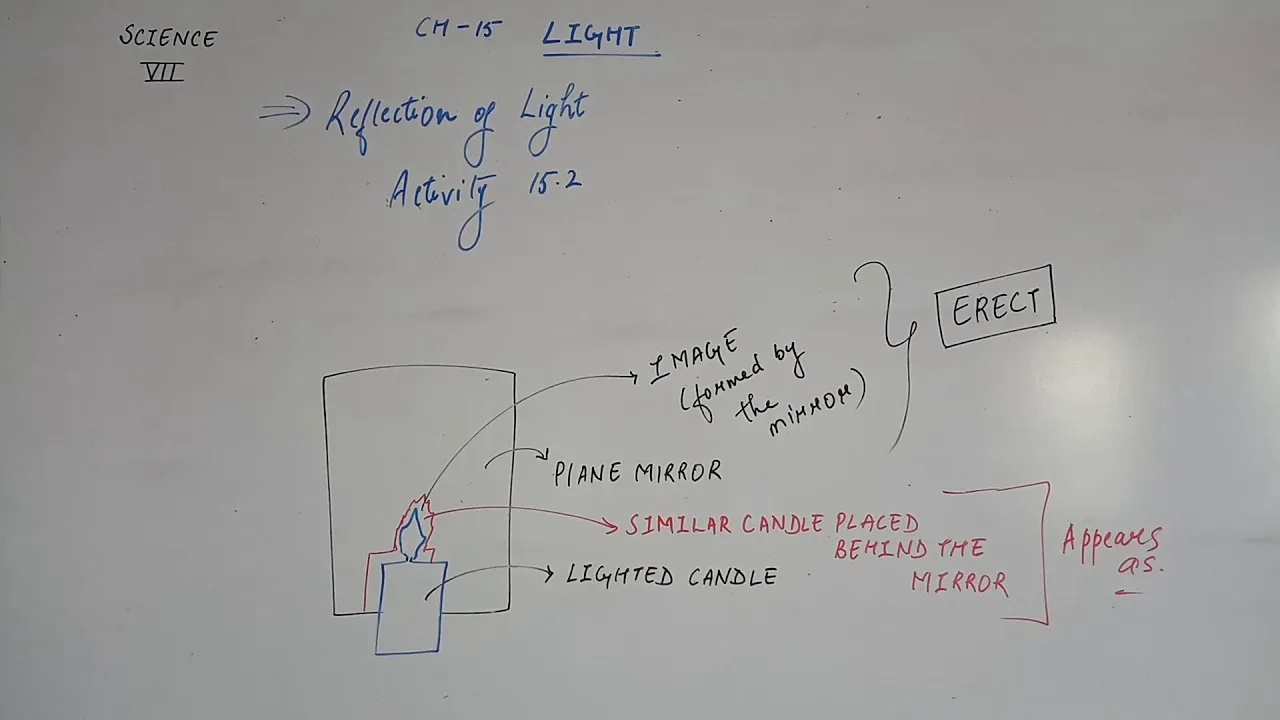 SCIENCE
VII
CH-15 LIGHT
⇒ Reflection of Light
Activity 15.2
ERECT
IMAGE
(formed by
the
mirror)
PLANE MIRROR
SIMILAR CANDLE PLACED
BEHIND THE
MIRROR
Appears
as.
LIGHTED CANDLE